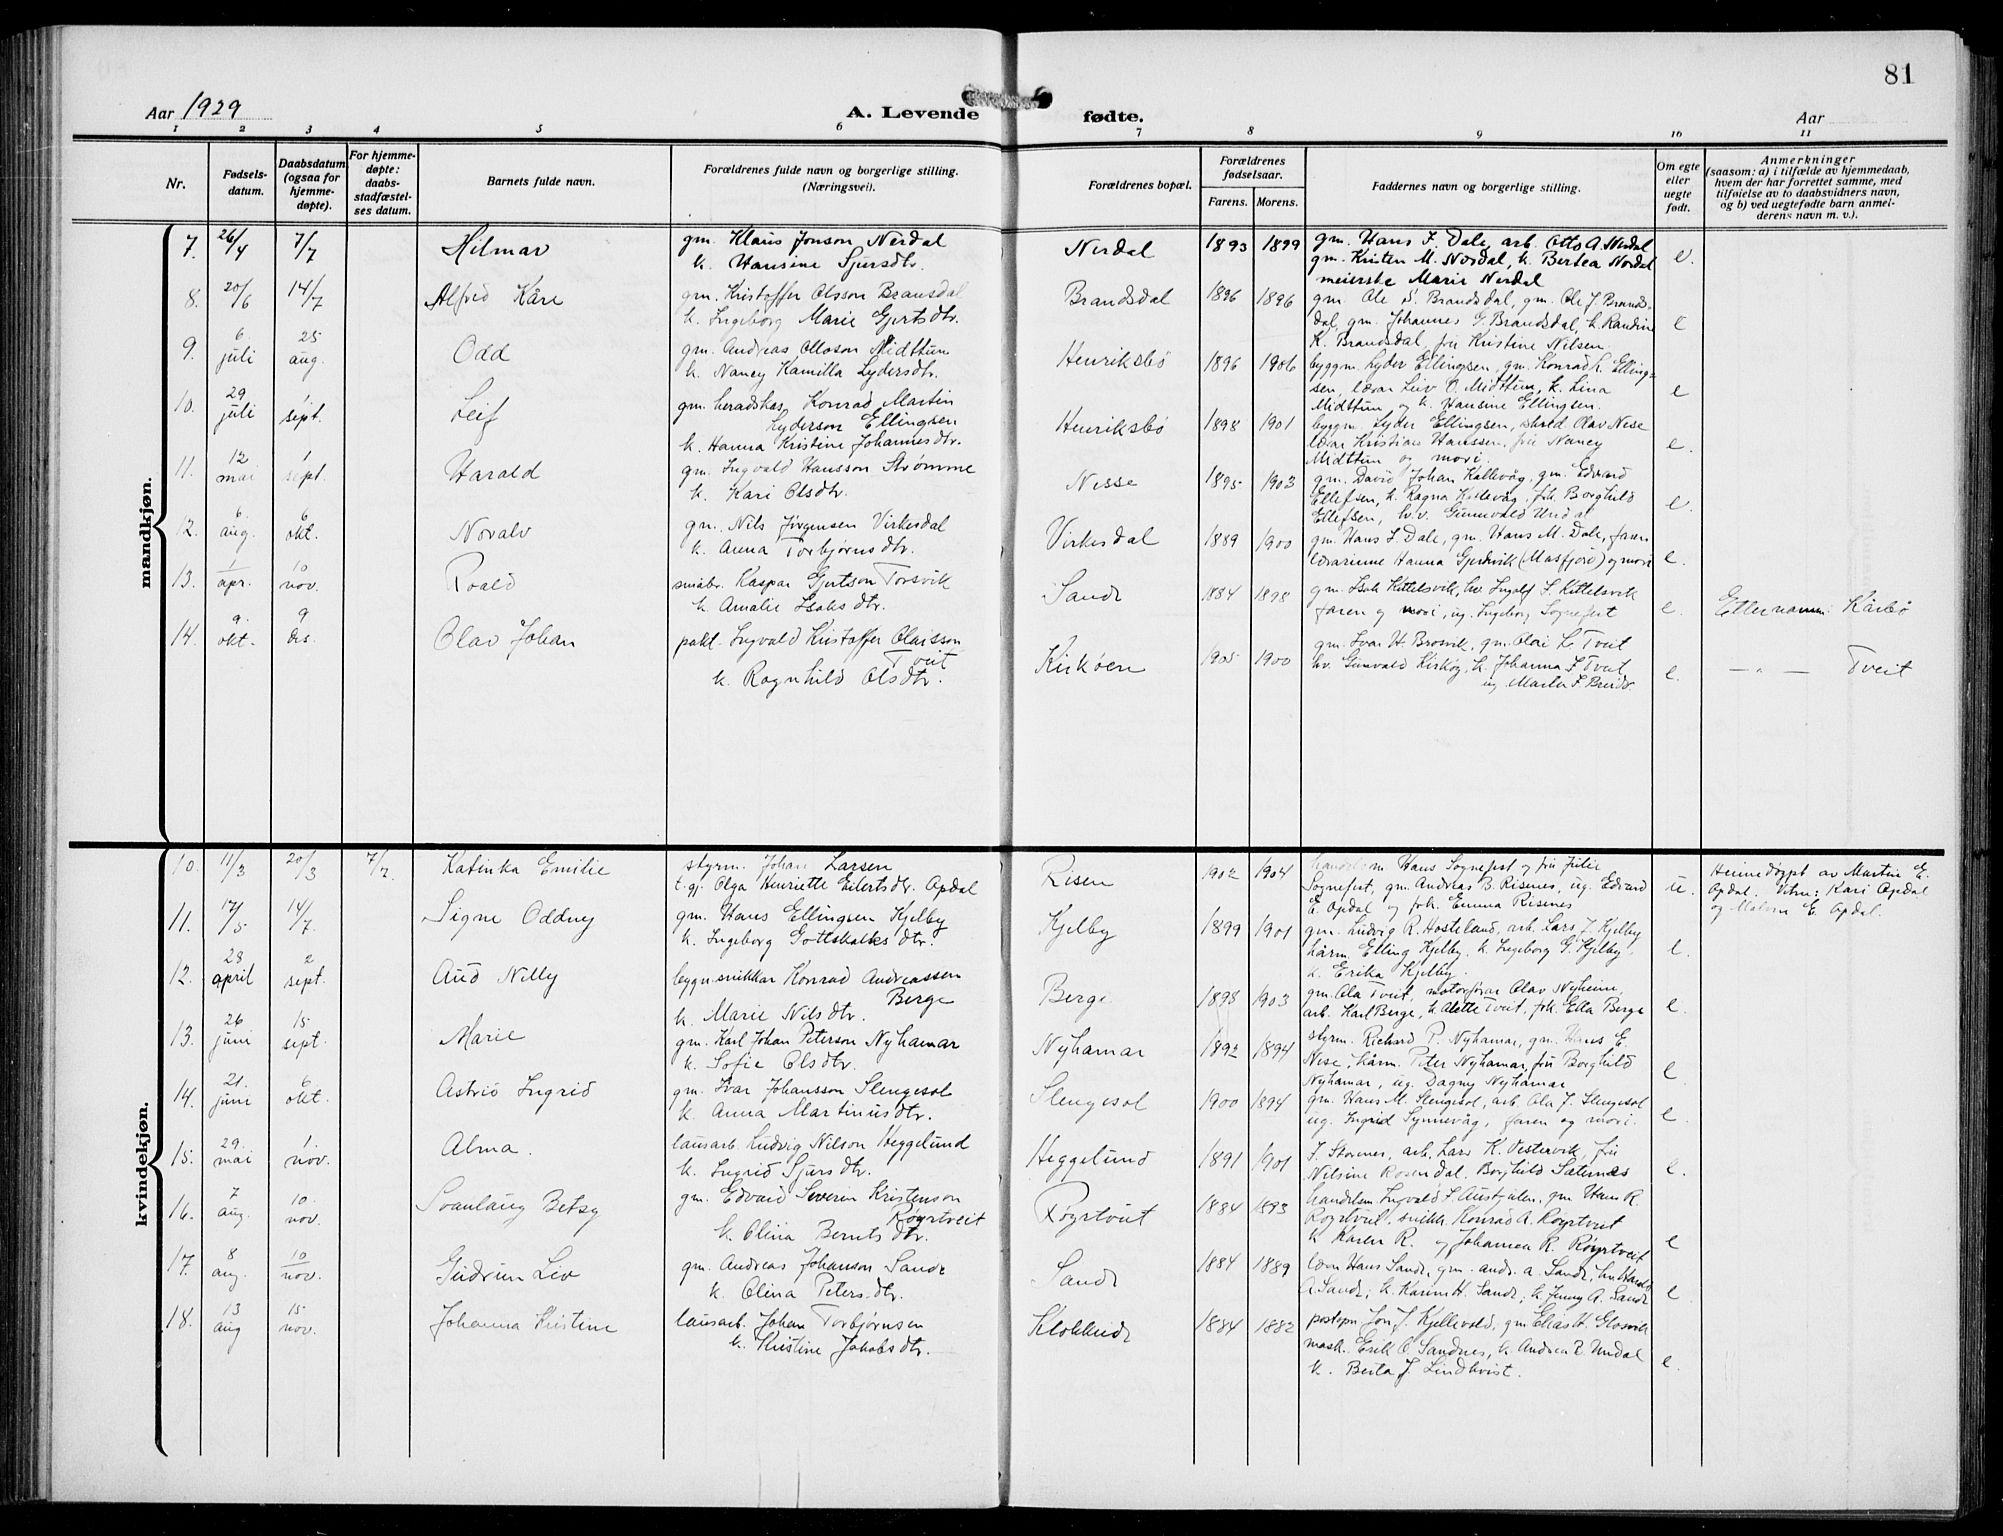 81
Aar 1929
A. Levende fødte.
Aar
1 2 3 4 5 6 7 8 9 10 11
Nr.
Fødsels-
datum.
Daabsdatum
(ogsaa for
hjemme-
døpte).
For hjemme-
døpte:
daabs-
stadfæstel-
ses datum.
Barnets fulde navn.
Forældrenes fulde navn og borgerlige stilling.
(Næringsvei).
Forældrenes bopæl.
Forældrenes
fødselsaar.
Farens. Morens.
Faddernes navn og borgerlige stilling.
Om egte
eller
uegte
født.
Anmerkninger
(saasom: a) i tilfælde av hjemmedaab,
hvem der har forrettet samme, med
tilføielse av to daabsvidners navn,
og b) ved uegtefødte barn anmel-
derens navn m. v.).
mandkjøn.
7. 26/4 7/7 Hilmar
gm. Klaus Jonson Nerdal
k. Hansine Sjursdtr.
Nerdal 1893 1899
gm. Hans J. Dale, arb. Otto A. Nerdal
gm. Kristen M. Nordal, k. Bertea Nordal
meierske Marie Nerdal
e.
8. 20/6 14/7 Alfred Kåre
gm. Kristoffer Olsson Bransdal
k. Ingeborg Marie Gjertsdtr.
Brandsdal 1896 1896
gm. Ole S. Brandsdal, gm. Ole J. Brands-
dal, gm. Johannes G. Brandsdal, k. Randine
K. Brandsdal, frk Kristine Nilsen.
e
9. 6. juli 25 aug. Odd
gm. Andreas Olloson Midttun
k. Nancy Kamilla Lydersdtr.
Henriksbø 1896 1906
byggm. Lyder Ellingsen, gm. Konrad L. Elling-
sen, lærar Leiv O. Midttun, k. Lina
Midttun og k. Hansine Ellingsen.
e
10. 29 juli 1 sept. Leif
gm. heradskas. Konrad Martin
Lyderson Ellingsen
k. Hanna Kristine Johannesdtr.
Henriksbø 1898 1901
byggm. Lyder Ellingsen, Olav Nese
lærar Kristian Hanssen, fru Nancy
Midttun og mori.
e.
11. 12 mai 1 sept. Harald
gm. Ingvald Hansson Strømme
k. Kari Olsdtr.
Nesse 1895 1903
gm. David Johan Kallevåg, gm. Edvard
Ellefsen, k. Ragna Kallevåg, frk. Borghild
Ellefsen, Gunnvald Undal
e.
12. 6. aug. 6 okt. Noralv
gm. Nils Jørgensen Virkesdal
k. Anna Torbjørnsdtr.
Virkesdal 1889 1900
gm. Hans J. Dale, gm. Hans M. Dale, faren
lærarinne Hanna Gjerkvik (Masfjord) og mori
e.
13. 1 apr. 10 nov. Roald
småbr. Kaspar Gjertson Torsvik
k. Amalie Isaksdtr.
Sande 1884 1898
gm. Isak Kittelsvik, hv. Ingolf I. Kittelsvik
faren og mori, ug. Ingeborg Sognefest
e.
Etternamn: Kårbø
14. 9. okt. 9 des. Olav Johan
pakt. Ingvald Kristoffer Olaisson
Tveit
k. Ragnhild Olsdtr.
Kirkøen 1905 1900
gm. Ivar H. Brosvik, gm. Olai L. Tveit
hv. Gunvald Kirkøy, k. Johanna I. Tveit
ug Marta I. Breidv.
e.
— " — Tveit
kvindekjøn.
10. 11/3 20/3 7/7. Katinka Emilie
styrm. Johan Larsen
t.gj. Olga Henriette Eilertsdtr. Opdal
Risen 1902 1904
handelsm Hans Sognefest og fru Julie
Sognefest, gm. Andreas B. Risenes, ug. Edvard
E. Opdal og frk. Emma Risenes
u.
Heimedøypt av Martin E.
Opdal. Vitne: Kari Opdal
og Malvin E. Opdal.
11. 17/5 14/7. Signe Oddny
gm. Hans Ellingsen Kjelby
k. Ingeborg Gottskalksdtr.
Kjelby 1899 1901
gm. Ludvig R. Hosteland, arb. Lars J. Kjelby
kårm. Elling Kjelby, k. Ingeborg G. Kjelby,
k. Erika Kjelby.
e.
12. 28 april 2 sept. Aud Nelly
bygn.snikkar Konrad Andreassen
Berge
k. Marie Nilsdtr.
Berge 1898 1903
gm. Ola Tveit, motorførar Olav Nyheim,
arb. Karl Berge, k. Alette Tveit, frk. Ella Berge
e.
13. 26 juni 15 sept. Marie
gm. Karl Johan Peterson Nyhamar
k. Sofie Olsdtr.
Nyhamar 1892 1894
styrm. Richard P. Nyhamar, gm. Hans E.
Nese, kårm. Peter Nyhamar, fru Borghild
Nyhamar, ug. Dagny Nyhamar
e
14. 21. juni 6 okt. Astrid Ingrid
gm. Ivar Johansson Slengesol
k. Anna Martinusdtr.
Slengesol 1900 1894
gm. Hans M. Slengesol, arb. Ola J. Slengesol
ug. Ingrid Synnevåg, faren og mori.
e
15. 29. mai 1. nov. Alma.
lausarb. Ludvig Nilson Heggelund
k. Ingrid Sjursdtr.
Heggelund 1891 1901
J. Storenes, arb. Lars K. Vestervik, fru
Nilsine Rosendal, Borghild Sæternes
e.
16. 7 aug. 10. nov. Svanlaug Betsy
gm. Edvard Severin Kristenson
Røyrtveit
k. Olina Berntsdtr.
Røyrtveit 1884 1893
handelsm. Ingvald S. Austgulen, gm Hans R.
Røyrtveit, snikk. Konrad A. Røyrtveit
k Karen R. og Johanna R. Røyrtveit
e
17. 8 aug. 10 nov. Gudrun Liv
gm. Andreas Johanson Sande
k. Olina Petersdtr.
Sande 1884 1889
Hans Sande, gm. Andr. A. Sande, hv. Harald
A. Sande, k. Karen H. Sande, k. Jenny A. Sande
e
18. 13 aug 15 nov. Johanna Kristine
lausarb. Johan Torbjørnsen
k. Kristine Jakobsdtr.
Klokkeide 1884 1882
postopn Jon J. Kjellevold, gm Elias H. Glosvik
mask. Erik O. Sandnes, k. Andrea R. Undal
k. Berta J. Lindkvist.
e.